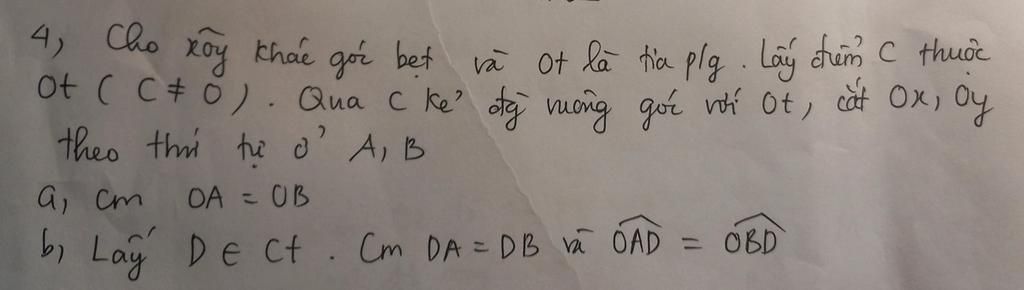 4, Cho xôy khác góc bẹt và Ot là tia p/g. Lấy điểm C thuộc
Ot ( C ≠ O ). Qua C kẻ đg̀ vuông góc với Ot, cắt Ox, Oy
theo thứ tự ở A, B
a, cm OA = OB
b, Lấy D ∈ Ct. Cm DA = DB và \widehat{OAD} = \widehat{OBD}